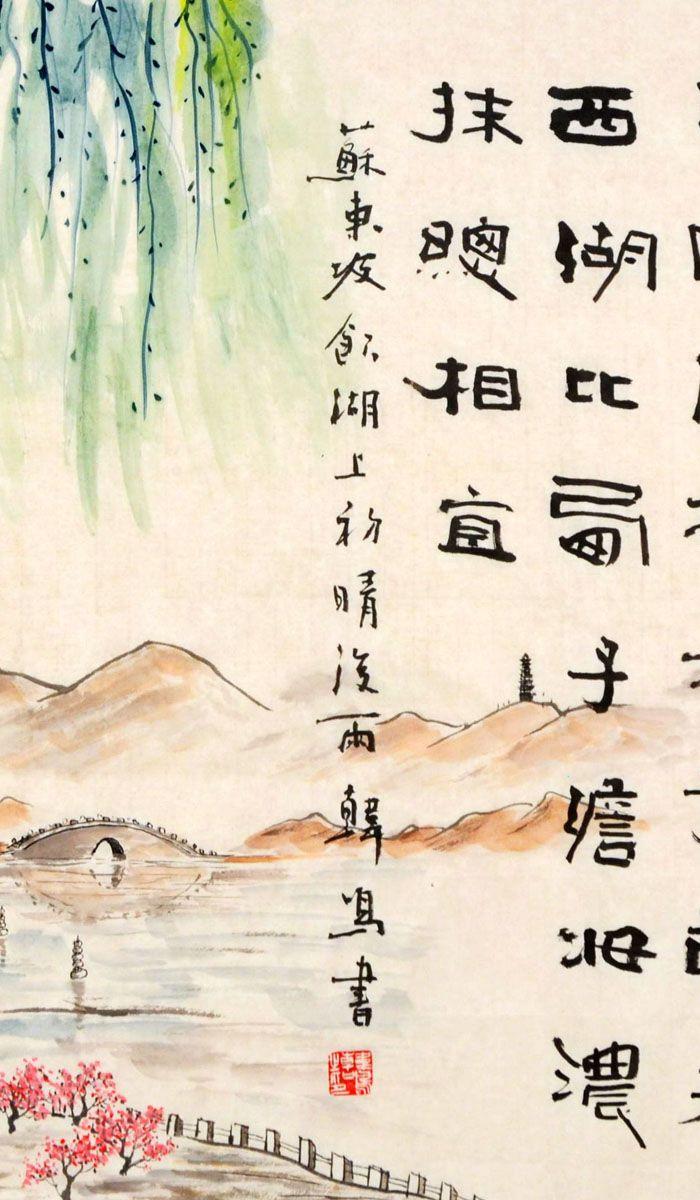 西湖比西子澹妝濃
抹總相宜
蘇東坡飲湖上初晴後雨韓鳴書